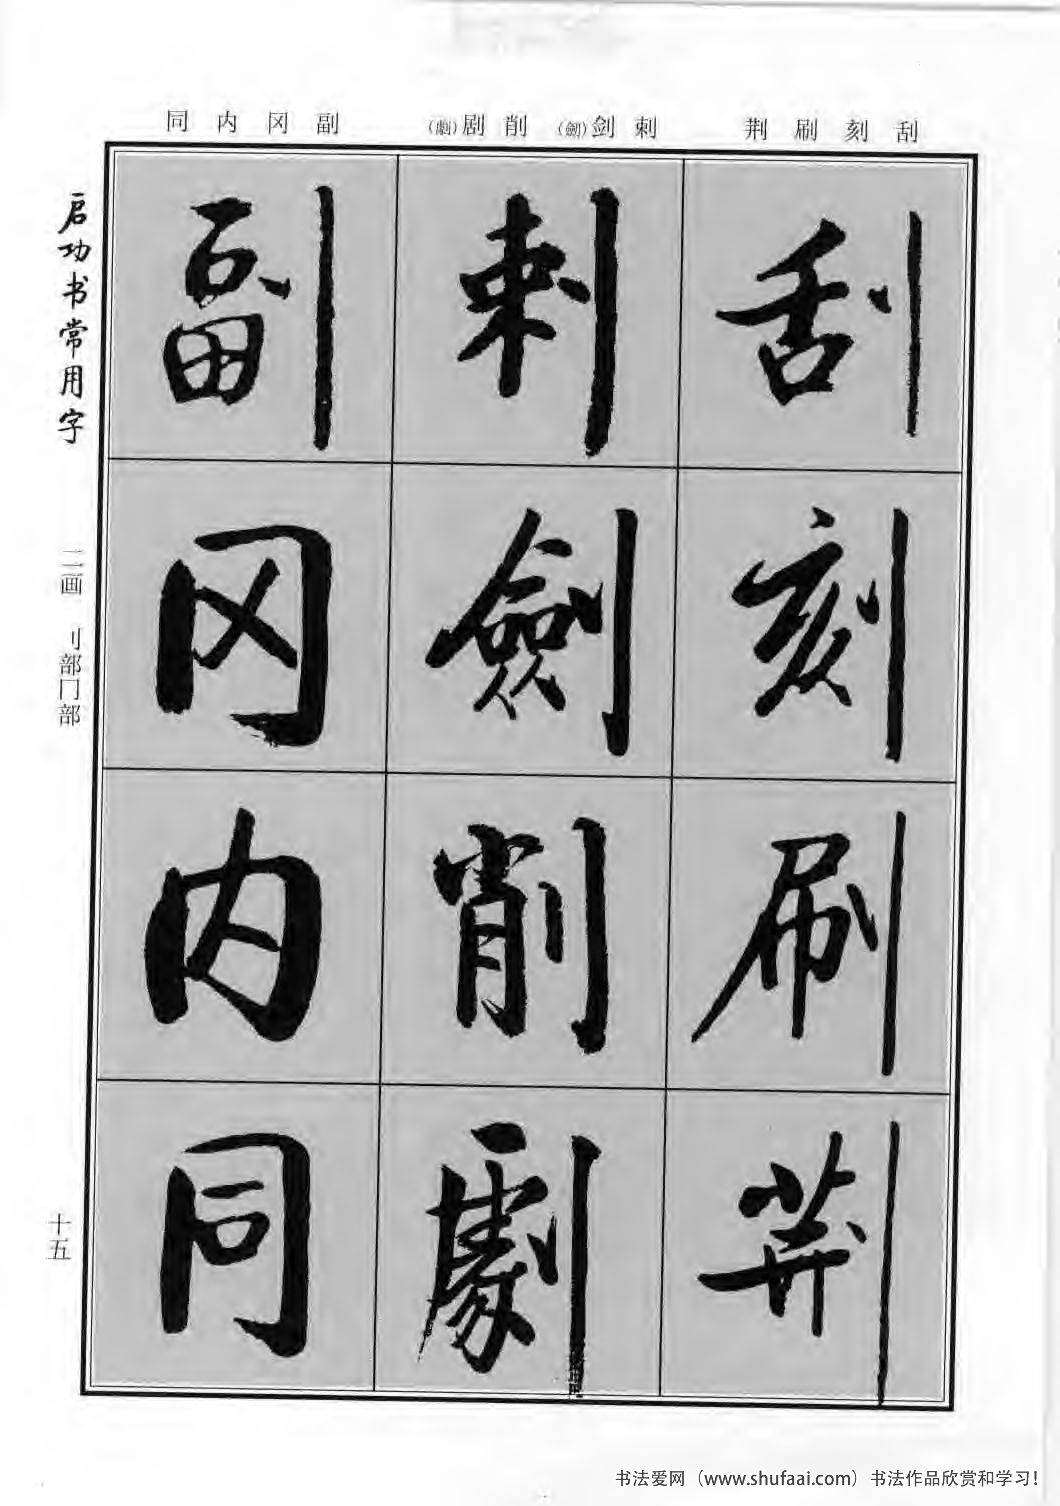 同 内 冈 副
(劇)剧 削 (劒)剑 刺
荆 刷 刻 刮
启功书常用字
二画 刂部冂部
十五
刮
刻
刷
荆
刺
劍
削
劇
副
冈
内
同
书法爱网（www.shufaai.com）书法作品欣赏和学习！